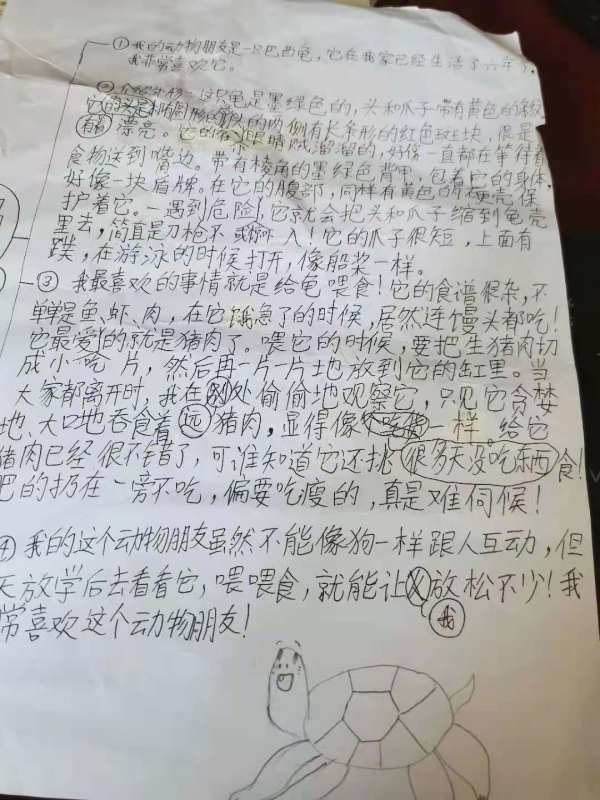 ① 我的动物朋友是一只巴西龟，它在我家已经生活了六年了，
我非常喜欢它。
② 这只龟是墨绿色的，头和爪子带有黄色的条纹
它的头是椭圆形的，头的两侧有长条形的红色斑块，很是
漂亮。它的 眼睛贼溜溜的，好像一直都在等待着
食物送到嘴边。带有棱角的墨绿色背甲，包着它的身体，
好像一块盾牌。在它的腹部，同样有黄色的硬壳保
护着它。一遇到危险，它就会把头和爪子缩到龟壳
里去，简直是刀枪不 入！它的爪子很短，上面有
蹼，在游泳的时候打开，像船桨一样。
③ 我最喜欢的事情就是给龟喂食！它的食谱很杂，不
单是鱼、虾、肉，在它饿急了的时候，居然连馒头都吃！
它最爱的就是猪肉了。喂它的时候，要把生猪肉切
成小 片，然后再一片一片地放到它的缸里。当
大家都离开时，我在 处偷偷地观察它，只见它贪婪
地、大口地吞食着 远 猪肉，显得像 一样。给它
猪肉已经很不错了，可谁知道它还挑 很多天没吃东西 食！
肥的扔在一旁不吃，偏要吃瘦的，真是难伺候！
④ 我的这个动物朋友虽然不能像狗一样跟人互动，但
天放学后去看看它，喂喂食，就能让 放松不少！我
我
常喜欢这个动物朋友！